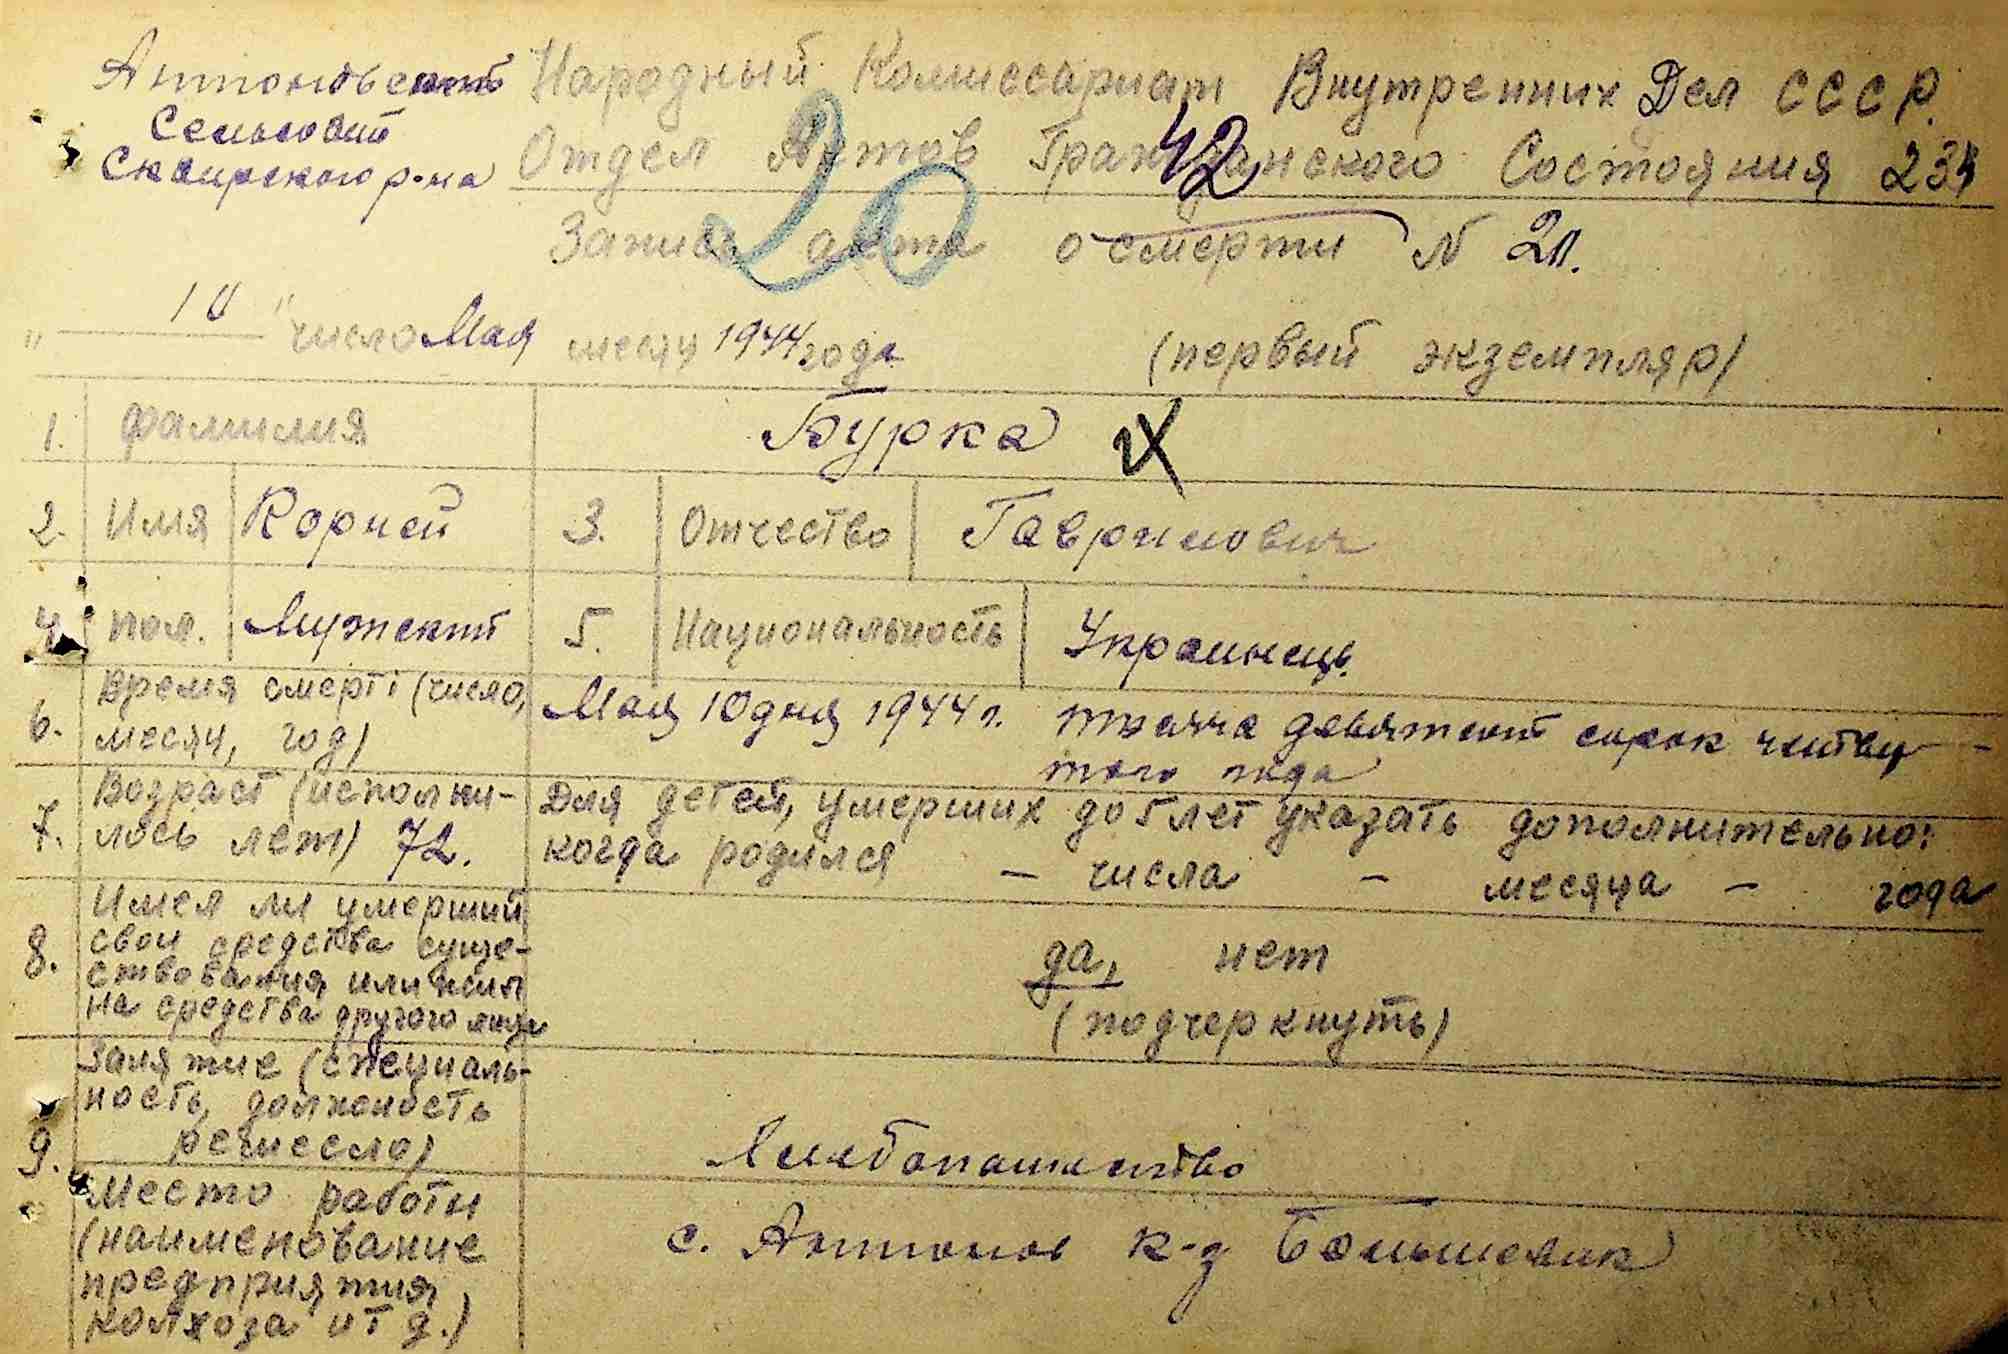 Антоновский Народный Комиссариат Внутренних Дел СССР.
Сельсовет
Сквирского р-на Отдел Актов Гражданского Состояния 234
42
20
Запись акта о смерти N 21.
" 10 " число Мая месяц 1944 года (первый экземпляр)
1. Фамилия Бурка
2. Имя Корней 3. Отчество Гаврилович
4. пол. Мужский 5. Национальность Украинець.
6. Время смерті (число, месяц, год) Мая 10 дня 1944 г. тысяча девятсот сорок читвер-
того года
7. Возраст (исполни-
лось лет) 72. Для детей, умерших до 5 лет указать дополнительно:
когда родился - числа - месяца - года
8. Имел ли умерший
свои средства суще-
ствования или жил
на средства другого лица
да, нет
(подчеркнуть)
9. Занятие (специаль-
ность, должность
ремесло) Хлебопашество
Место работи
(наименование
предприятия
колхоза и т д.)
с. Антонов к-з Большевик